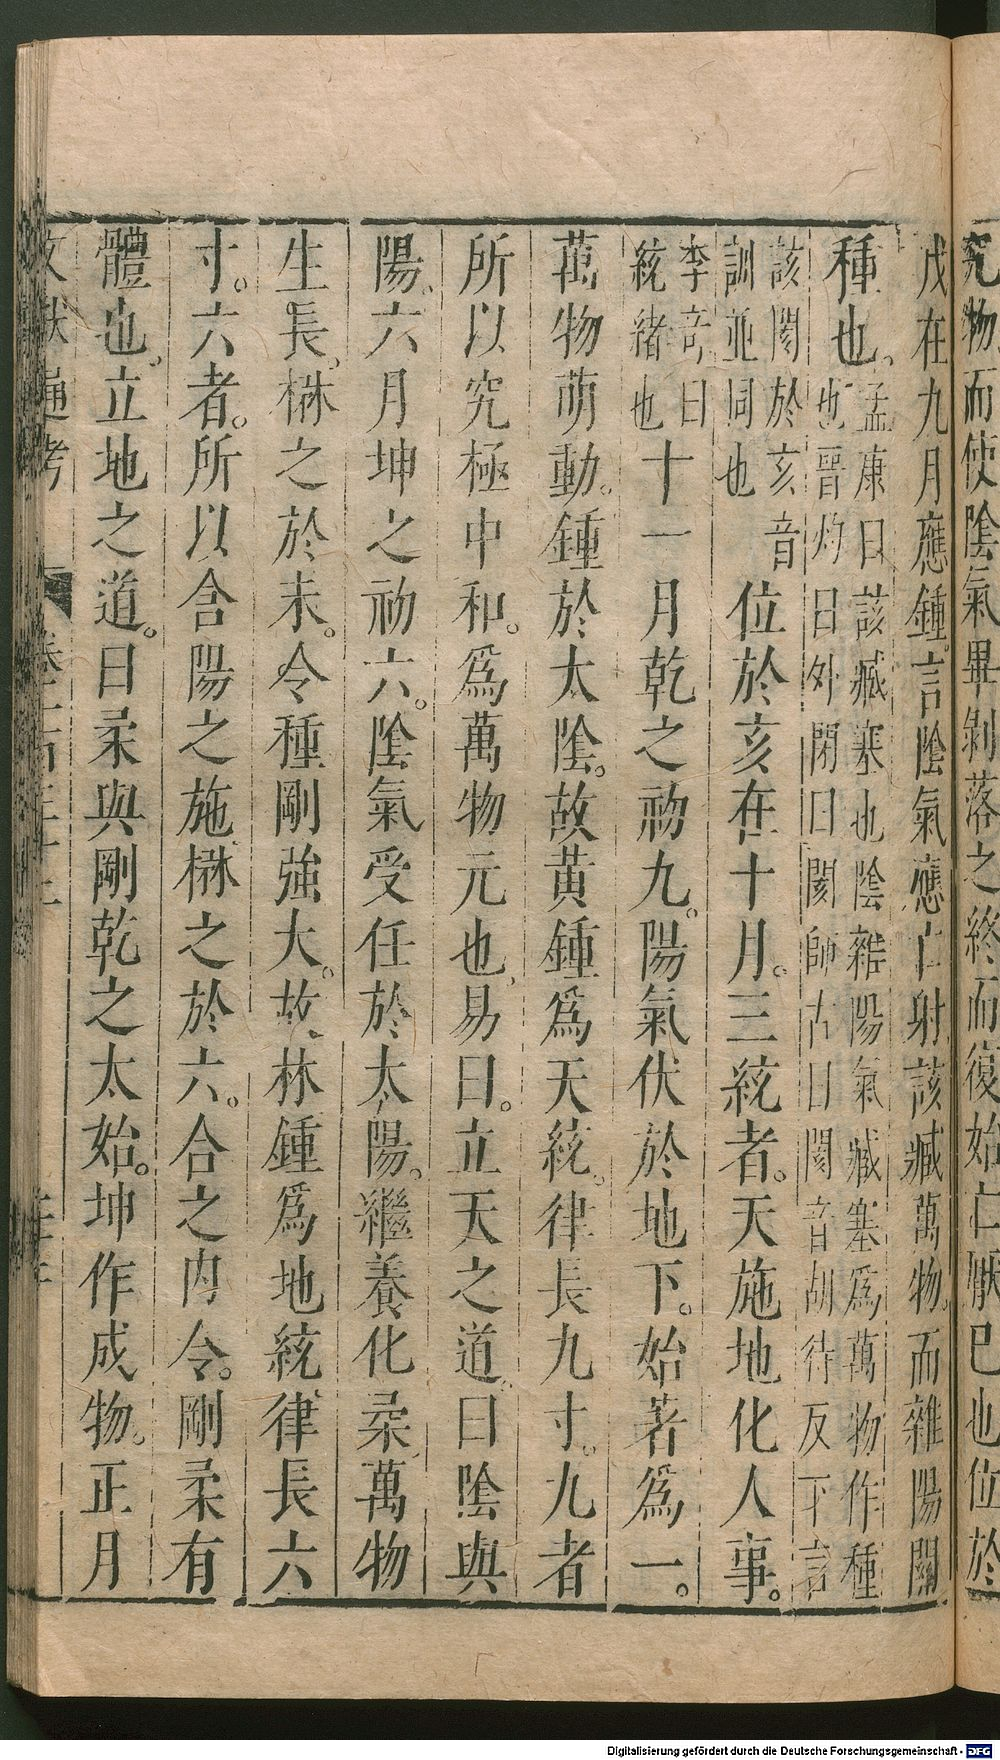 究物而使陰氣畢剝落之終而復始亡厭已也位於
戌在九月應鍾言陰氣應亡射該臧萬物而雜陽閡
種也孟康曰該臧塞也陰雜陽氣臧塞爲萬物作種
也晉灼曰外閉曰閡師古曰閡音胡待反下言
該閡於亥音
訓並同也
位於亥在十月。三統者。天施地化人事。
李竒曰
統緒也
十一月乾之初九。陽氣伏於地下。始著爲一。
萬物萌動。鍾於太陰。故黄鍾爲天統。律長九寸。九者
所以究極中和。爲萬物元也、易曰。立天之道。曰陰與
陽。六月坤之初六。陰氣受任於太陽。繼養化柔、萬物
生長。楙之於未。令種剛強大。故林鍾爲地統、律長六
寸。六者。所以含陽之施、楙之於六。合之内令。剛柔有
體也。立地之道。曰柔與剛乾之太始。坤作成物。正月
文獻通考